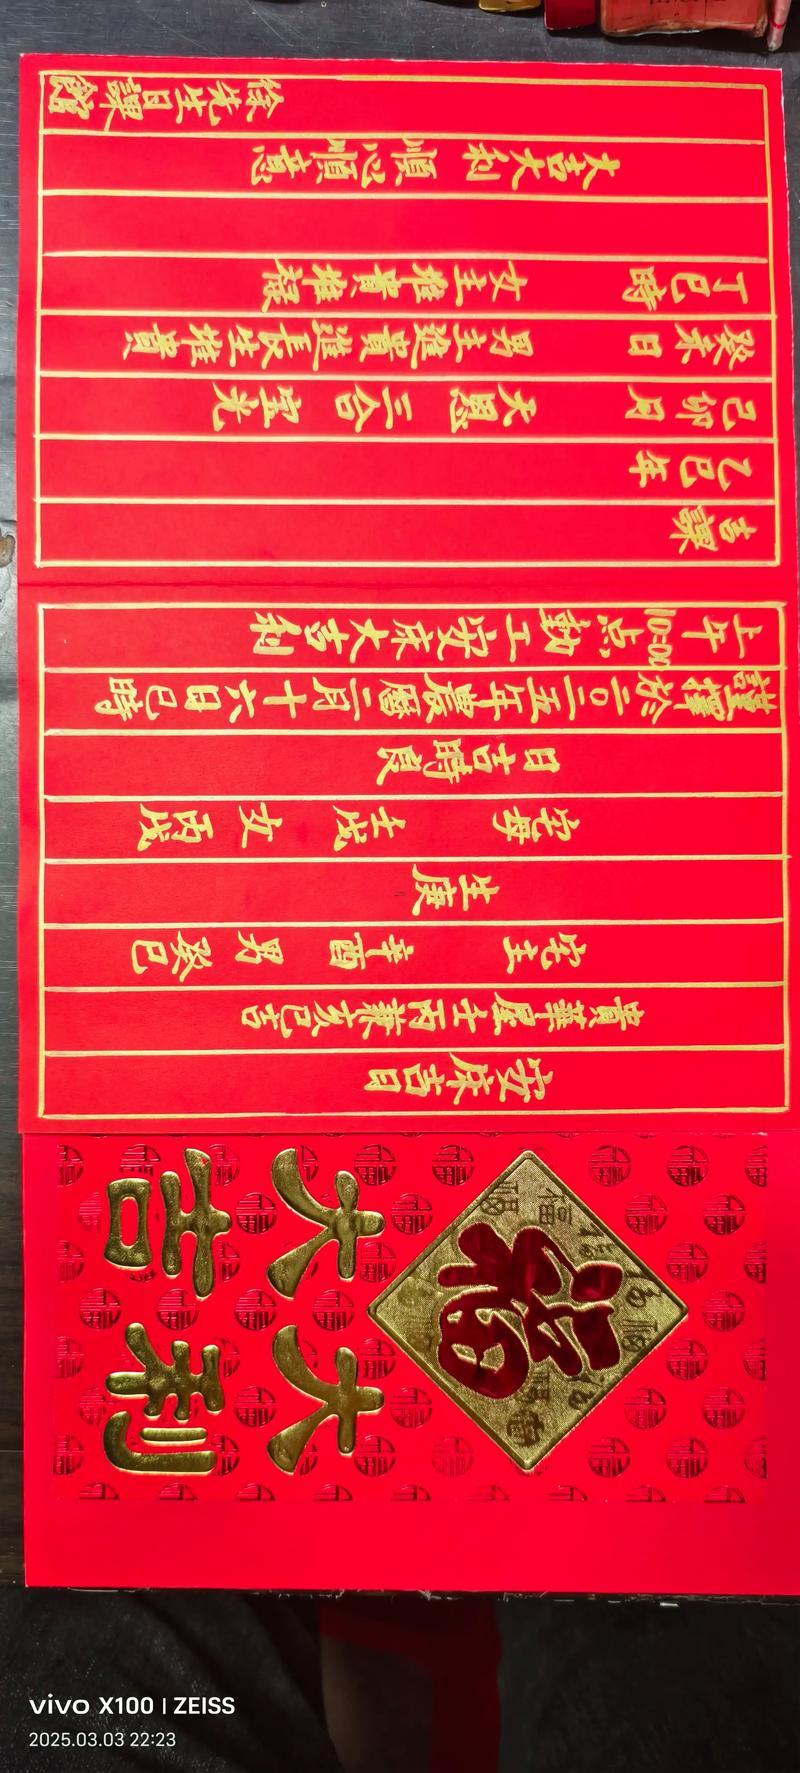 安床吉日
貴華屋壬丙兼亥巳吉
宅主 辛酉 男 癸巳
生庚
宅母 壬戌 女 丙戌
日吉時良
謹擇於二〇二五年農曆二月十六日巳時
上午10:00点動工安床大吉利
吉課
乙巳年
己卯月 天恩 三合 宝光
癸未日 男主進貴進長生堆貴
丁巳時 女主堆貴堆祿
大吉大利 順心順意
徐先生日課館
福
大吉
大利
vivo X100 | ZEISS
2025.03.03 22:23